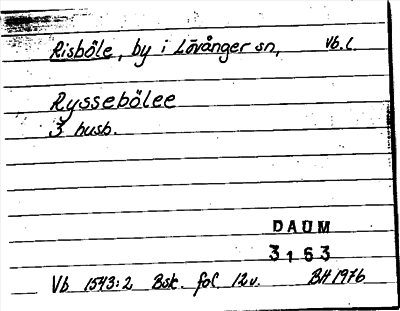 Risböle, by i Lövånger sn, Vb.l.
Ryssebölee
3 husb.
DAUM
3163
Vb 1543:2 Bsk. fol 12v. BH 1976